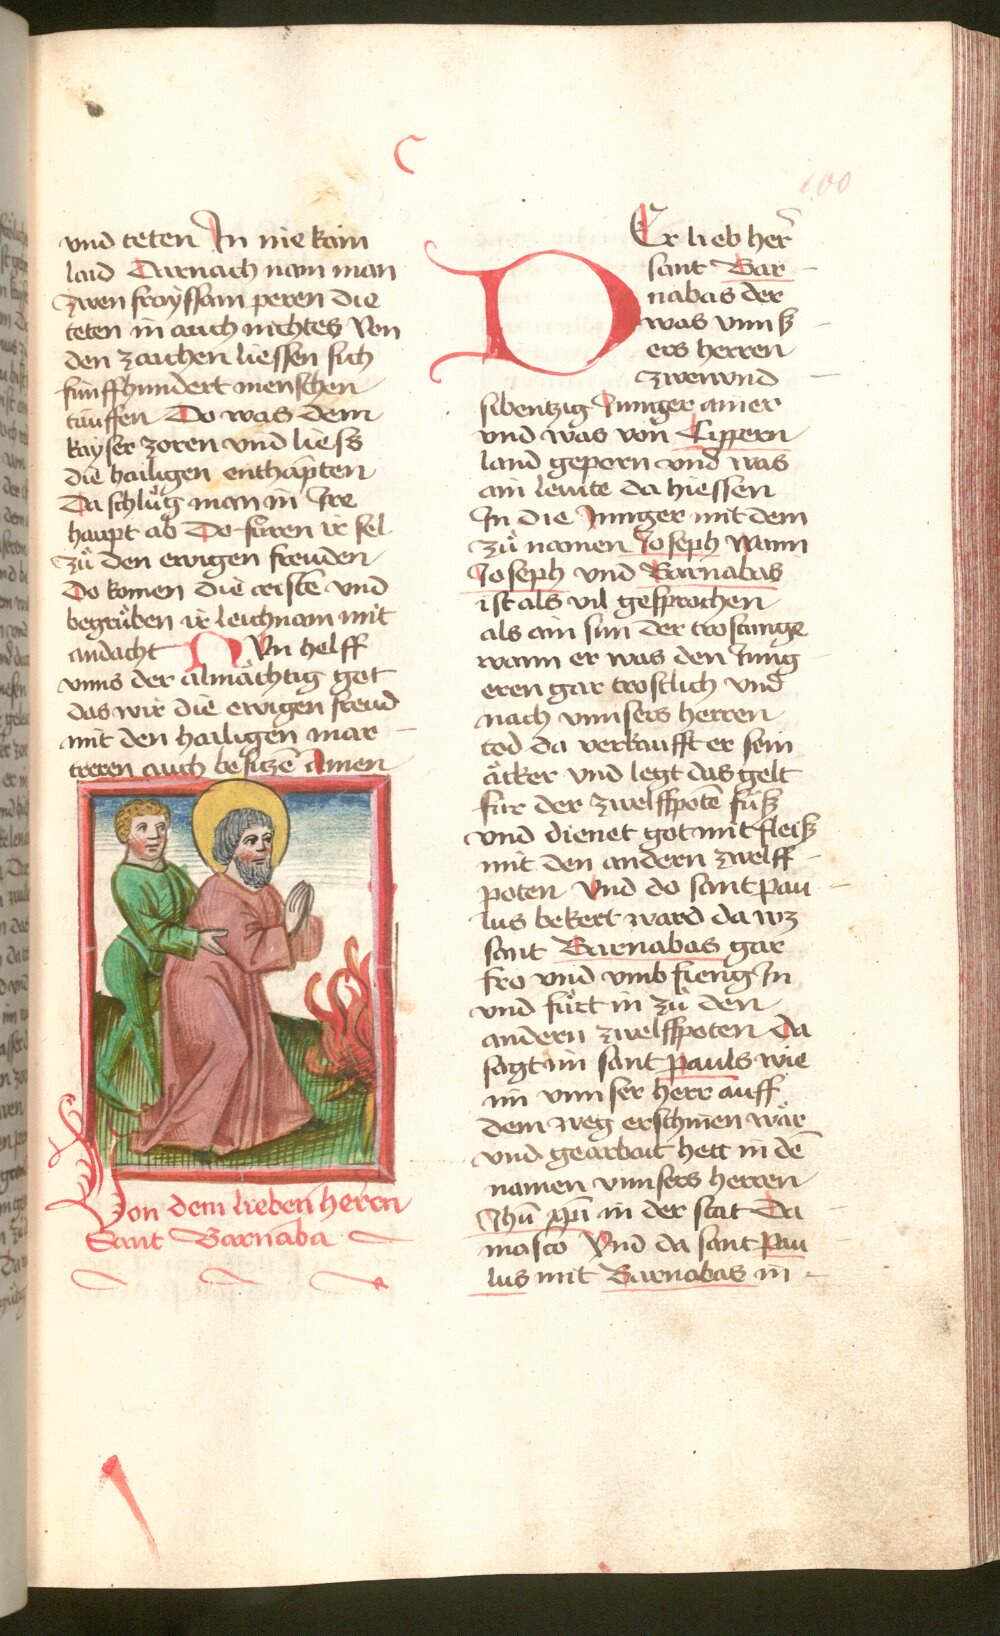 C
100
vnd teten In nie kain
laid Darnach nam man
zwen froyssam peren die
teten in auch nichtes Von
den zaichen liessen sich
fünffhundert menschen
tauffen Do was dem
kayser zoren vnd liess
die hailigen enthapten
Da schlůg man in Ire
haupt ab Do fůren ir sel
zů den ewigen freuden
Do komen die cristē vnd
begrůben ir leichnam mit
andacht NVn helff
vnns der almächtig got
das wir die ewigen freud
mit den hailigen mar
treren auch besitzē Amen
Von dem lieben herrn
Sant Barnaba
DEr lieb her
sant Bar
nabas der
was vnnß
ers herren
zwenvnd
sibentzig Junger ainer
vnd was von Cippern
land geporn vnd was
ain lewite da hiessen
In die Junger mit dem
zů namen Joseph wann
Joseph vnd Barnabas
ist als vil gesprochen
als ain sun der trostunge
wann er was den Jung
eren gar trostlich vnd
nach vnnsers herren
tod da verkaufft er sein
äcker vnd legt das gelt
für der zwelffpotē füß
vnd dienet got mit fleiß
mit den andern zwelff
poten Vnd do sant pau
lus bekert ward da wz
sant Barnabas gar
fro vnd vmb fieng In
vnd fůrt in zů den
andern zwelffpoten Da
sagt im sant pauls wie
im vnnser herr auff
dem weg erschinen wär
vnd gearbait hett in dē
namen vnnsers herren
Jhū xp̄i in der stat Da
masco Vnd da sant Pau
lus mit Barnabas in